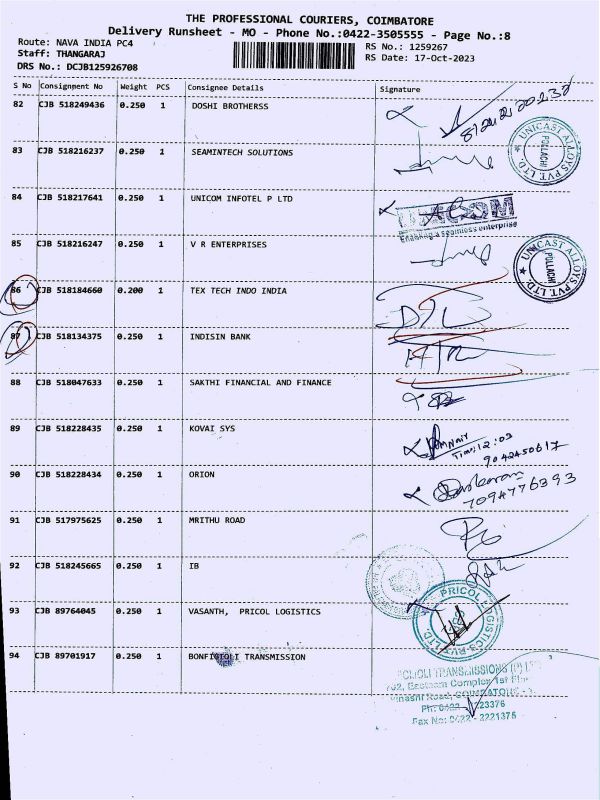 THE PROFESSIONAL COURIERS, COIMBATORE
Delivery Runsheet - MO - Phone No.:0422-3505555 - Page No.:8
Route: NAVA INDIA PC4
RS No.: 1259267
Staff: THANGARAJ
RS Date: 17-Oct-2023
DRS No.: DCJB125926708
S No Consignment No Weight PCS Consignee Details Signature
82 CJB 518249436 0.250 1 DOSHI BROTHERSS
UNICAST ALLOYS PVT. LTD. POLLACHI
83 CJB 518216237 0.250 1 SEAMINTECH SOLUTIONS
84 CJB 518217641 0.250 1 UNICOM INFOTEL P LTD
UNICOM
Enabling a seamless enterprise
85 CJB 518216247 0.250 1 V R ENTERPRISES
UNICAST ALLOYS PVT. LTD. POLLACHI
86 CJB 518184660 0.200 1 TEX TECH INDO INDIA
87 CJB 518134375 0.250 1 INDISIN BANK
88 CJB 518047633 0.250 1 SAKTHI FINANCIAL AND FINANCE
89 CJB 518228435 0.250 1 KOVAI SYS
Time: 12:03
9042450617
90 CJB 518228434 0.250 1 ORION
7094776393
91 CJB 517975625 0.250 1 MRITHU ROAD
92 CJB 518245665 0.250 1 IB
93 CJB 89764045 0.250 1 VASANTH, PRICOL LOGISTICS
PRICOL LOGISTICS PVT LTD.
94 CJB 89701917 0.250 1 BONFIGTOLI TRANSMISSION
TRANSMISSIONS (P) LTD
702, Eastern Complex 1st
Road, COIMBATORE
Ph: 0422 - 223376
Fax No: 0422 - 2221375